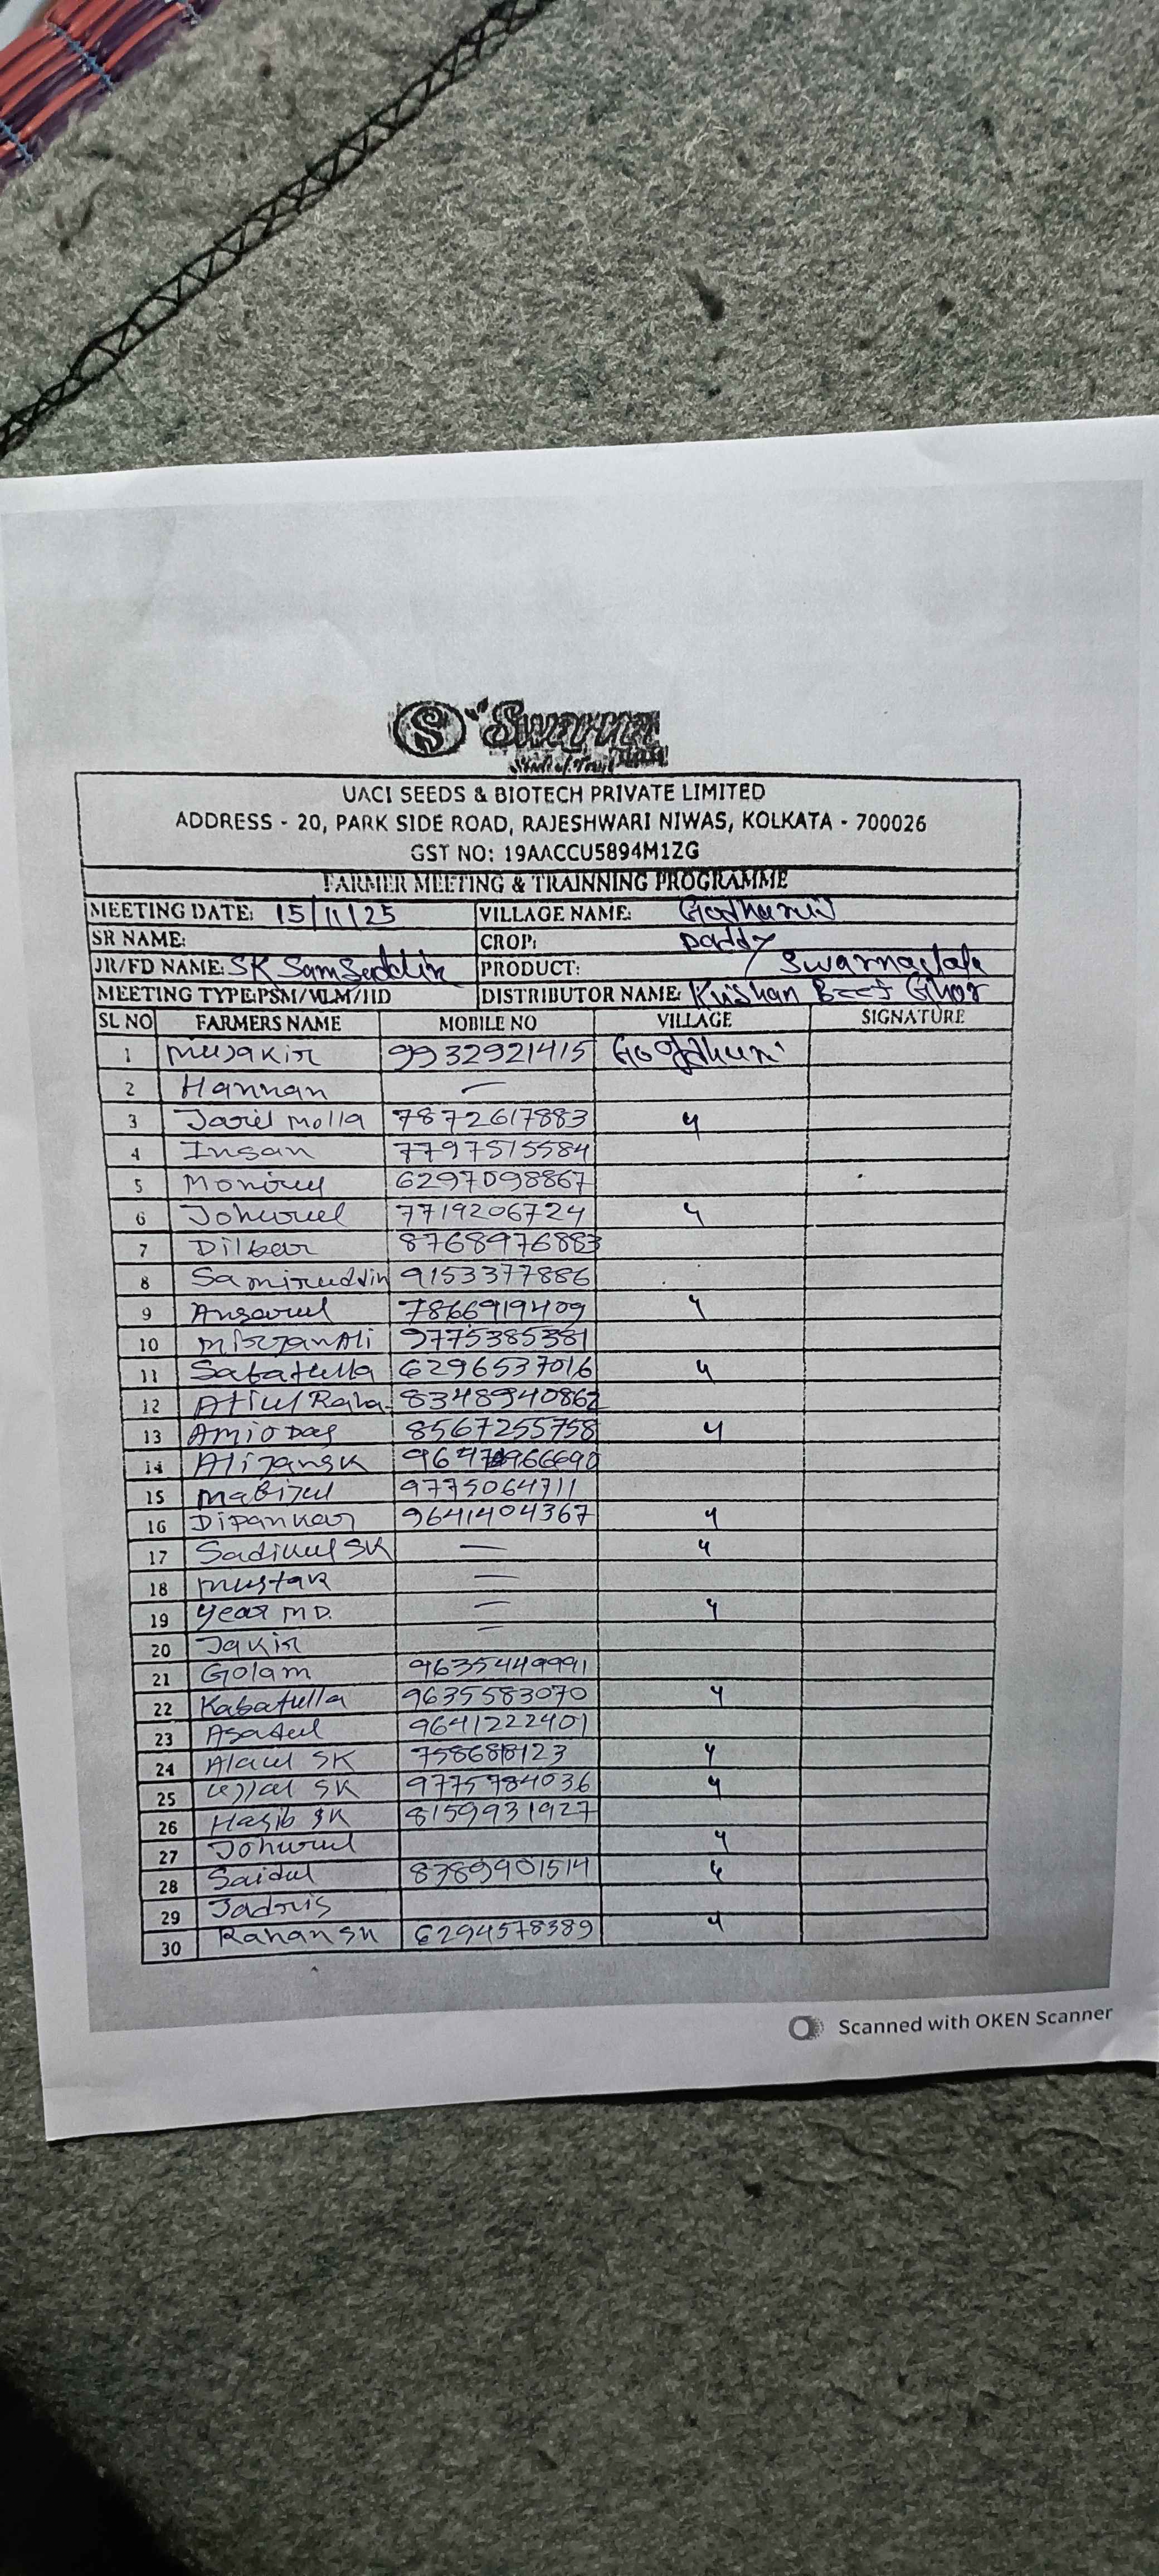 S Swarna
UACI SEEDS & BIOTECH PRIVATE LIMITED
ADDRESS - 20, PARK SIDE ROAD, RAJESHWARI NIWAS, KOLKATA - 700026
GST NO: 19AACCU5894M1ZG
FARMER MEETING & TRAINNING PROGRAMME
MEETING DATE: 15/11/25 VILLAGE NAME:
SR NAME: CROP: Paddy
JR/FD NAME: SK Samseddin PRODUCT:
MEETING TYPE:PSM/VLM/IID DISTRIBUTOR NAME: Krishan Ghor
SL NO FARMERS NAME MOBILE NO VILLAGE SIGNATURE
1 Mujakir 9932921415
2 Hannan —
3 Molla 7872617883 4
4 Insan 7797515584
5 Monirul 6297098867
6 Johurul 7719206724 4
7 Dilbar 8768976883
8 Samiruddin 9153377886
9 Ansarul 7866919409 4
10 Mirjan Ali 9775385381
11 Sabatulla 6296537016 4
12 8348940862
13 Amio Das 8567255758 4
14 Alijan SK
15 Mabijul 9775064711
16 Dipankar 9641404367 4
17 Sadikul SK — 4
18 Mustak —
19 Year MD. — 4
20 Jakir —
21 Golam 9635449991
22 Kabatulla 9635583070 4
23 Asadul 9641222401
24 Alaul SK 4
25 Ujjal SK 9775784036 4
26 Hasib SK 8159931927
27 Johurul 4
28 Saidul 8389901514 4
29 Jadris
30 Rahan SK 6294578389 4
Scanned with OKEN Scanner